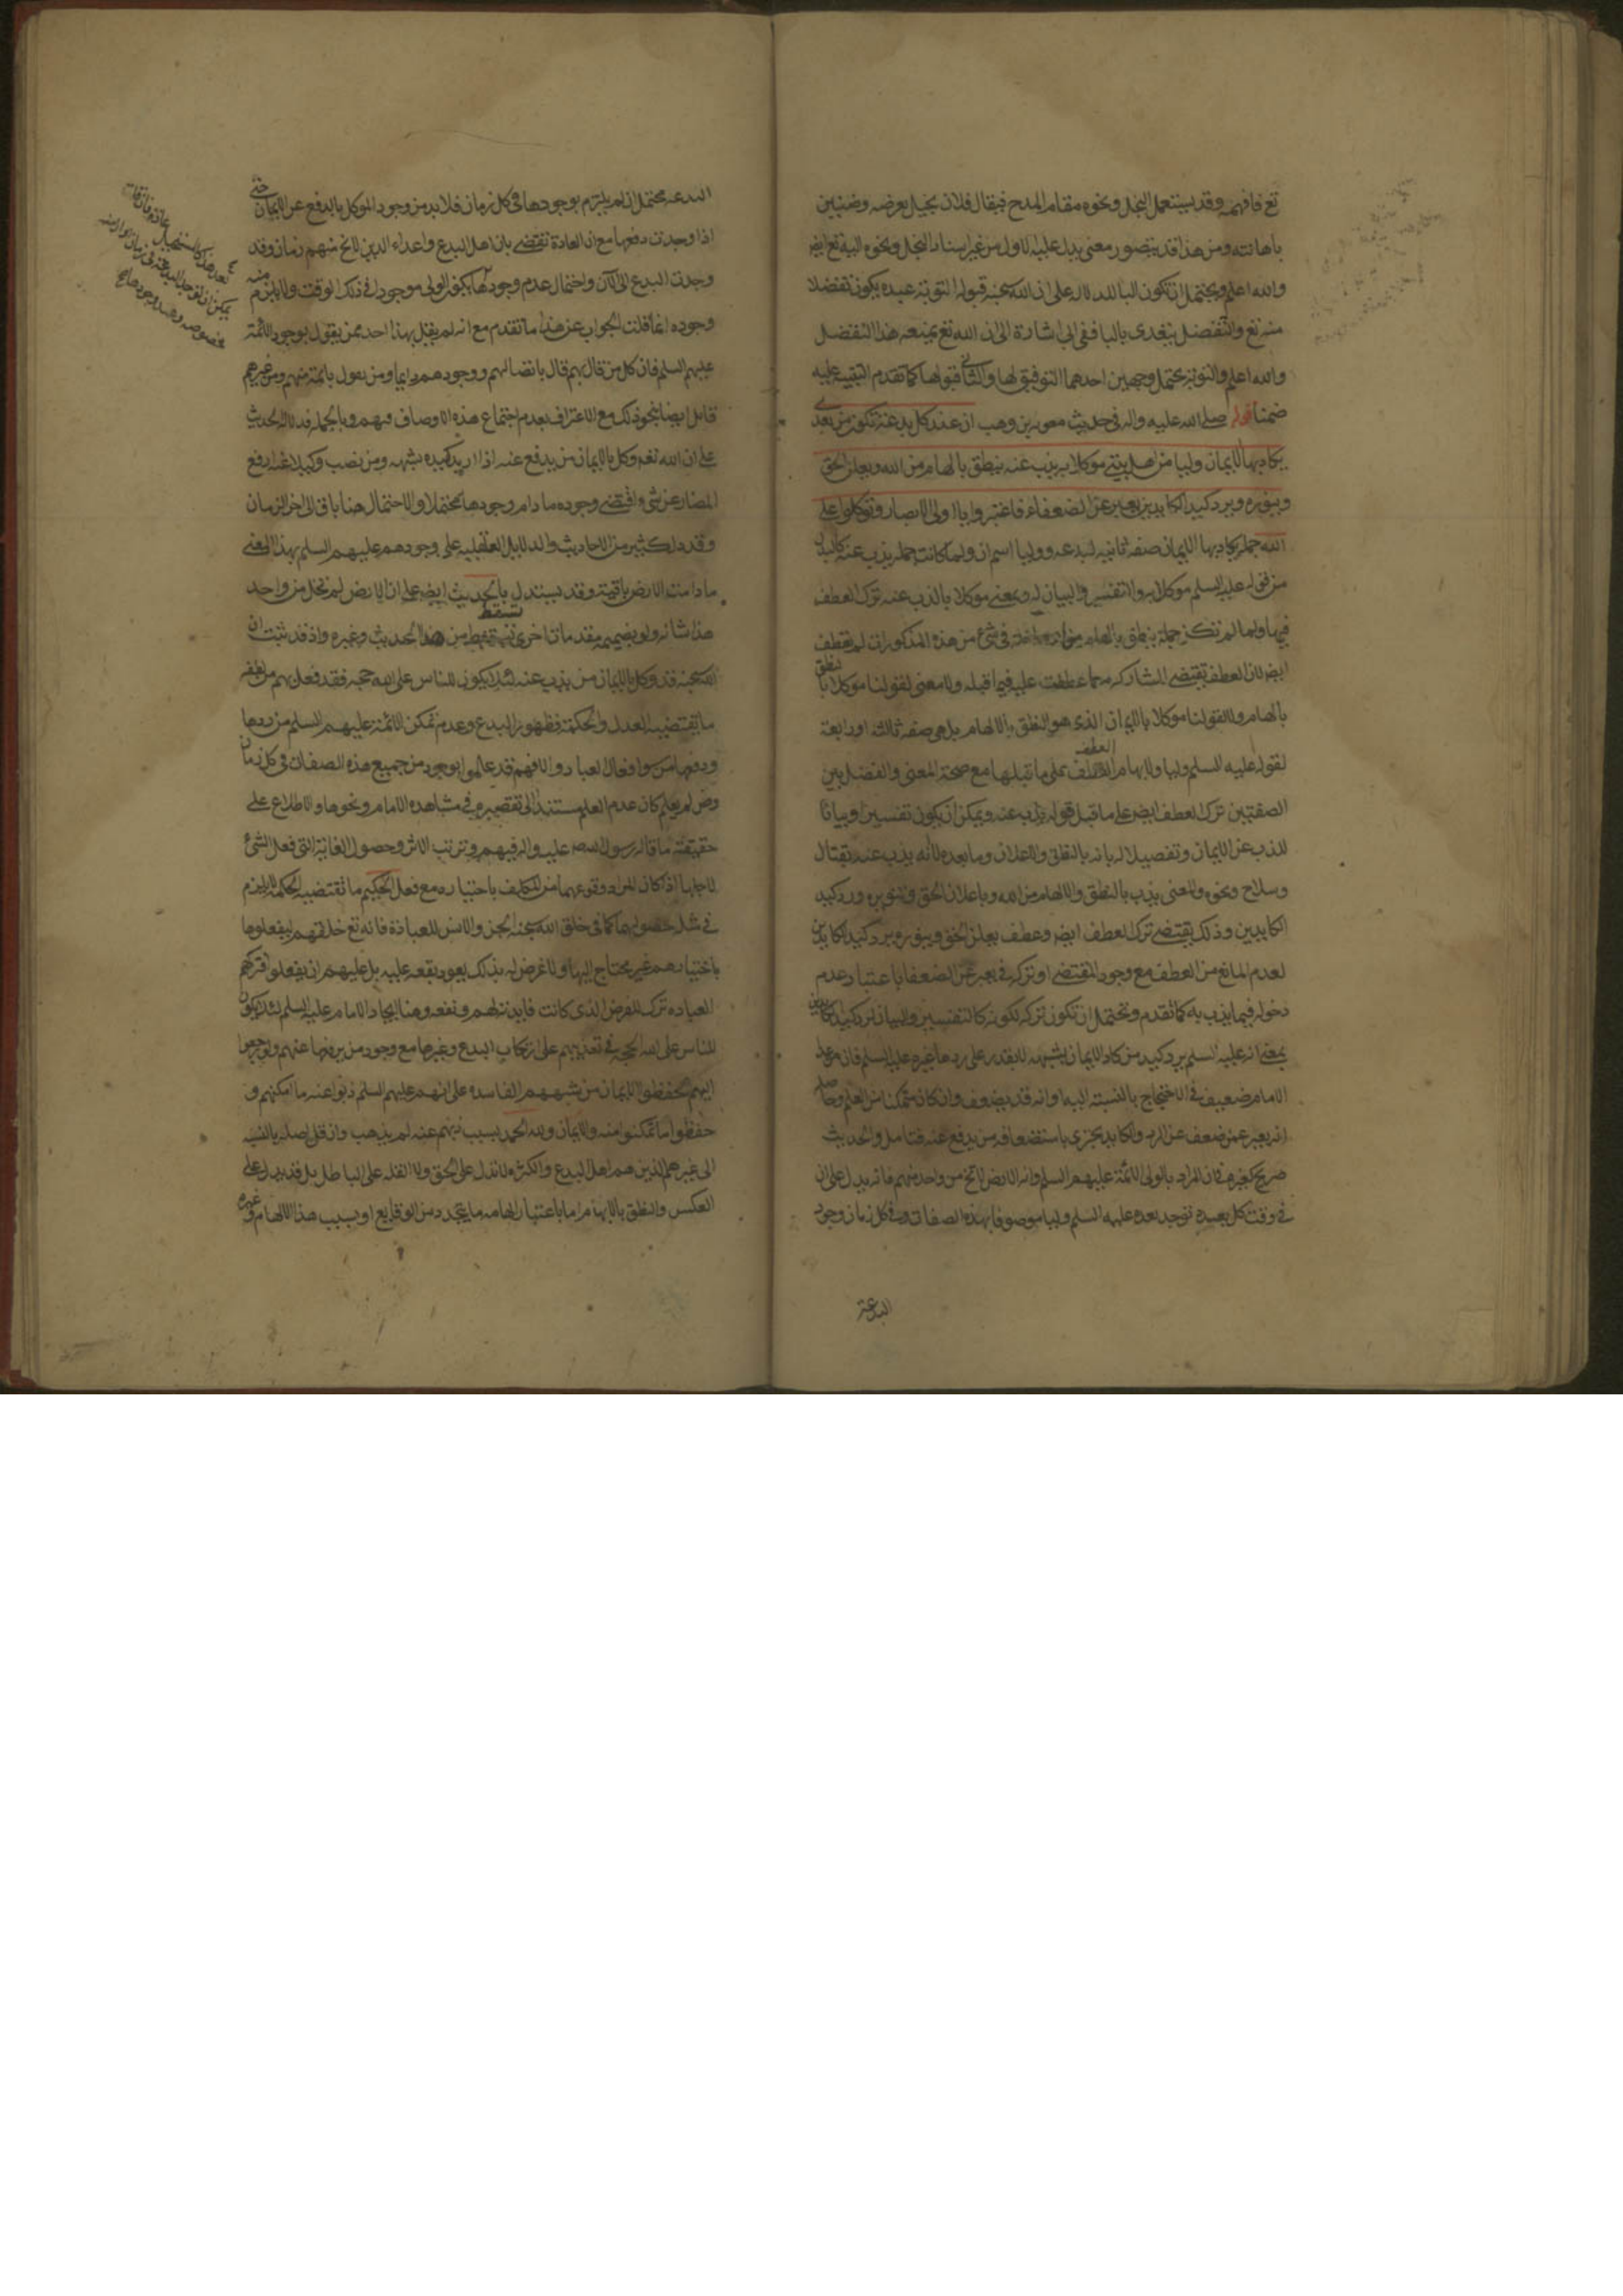 تع فافهم وقد يستعمل البخل ونحوه مقام المدح فيقال فلان بخيل بعرضه وضنين
باهانته ومن هذا قد يتصور معنى يدل عليه الاول من غير اسناد البخل ونحوه اليه تع ايض
والله اعلم ويحتمل ان تكون البا للدلالة على ان الله سبحنه قبوله التوبة عبده يكون تفضلا
منه تع والتفضل يتعدى بالبا ففي الى اشارة الى ان الله تع يمنعه هذا التفضل
والله اعلم والتوبة يحتمل وجهين احدهما التوفيق لها والثاني قبولها كما تقدم التنبيه عليه
ضمنا قوله صلى الله عليه واله في حديث معوية بن وهب ان عند كل بدعة تكون من بعدي
يكاد بها الايمان وليا من اهل بيتي موكلا به يذب عنه ينطق بالهام من الله ويعلن الحق
وينوره ويرد كيد الكايدين يعبر عن الضعفاء فاعتبروا يا اولي الابصار وتوكلوا على
الله جملة يكاد بها الايمان صفة ثانية لبدعة ووليا اسم ان ولما كانت جملة يذب عنه كالبدل
من قوله عليه السلم موكلا به والتفسير والبيان له وبمعنى موكلا بالذب عنه ترك العطف
فيها ولما لم تكن جملة ينطق بالهام داخلة في شئ من هذه المذكورات لم تعطف
ايض لان العطف يقتضي المشاركة مع ما عطفت عليه فيما قبله ولا معنى لقولنا موكلا بان ينطق
بالهام ولا لقولنا موكلا بالايمان الذي هو النطق بالالهام بل هي صفة ثالثة او رابعة
لقوله عليه السلم وليا ولايهام العطف على ما قبلها مع صحة المعنى والفصل بين
الصفتين ترك العطف ايض على ما قبل قوله يذب عنه ويمكن ان يكون تفسيرا وبيانا
للذب عن الايمان وتفصيلا له بانه بالنطق والاعلان وما بعده لا انه يذب عنه بقتال
وسلاح ونحوه والمعنى يذب بالنطق والالهام من الله وباعلان الحق وتنويره ورد كيد
الكايدين وذلك يقتضي ترك العطف ايض وعطف يعلن الحق وينوره ويرد كيد الكايدين
لعدم المانع من العطف مع وجود المقتضي او تركه في يعبر عن الضعفا باعتبار عدم
دخوله فيما يذب به كما تقدم ويحتمل ان تكون تركه لكونه كالتفسير والبيان لرد كيد الكايدين
بمعنى انه عليه السلم يرد كيد من كاد الايمان بشبهة لا يقدر على ردها غيره عليه السلم فان من عدا
الامام ضعيف في الاحتجاج بالنسبة اليه او انه قد يضعف وان كان متمكنا من العلم وحاصله
انه يعبر عمن ضعف عن الرد والكايد يجتري باستضعافه من يدفع عنه فتامل والحديث
صريح كغيره في ان المراد بالولي الائمة عليهم السلم وان الارض لا تخ من واحد منهم فانه يدل على ان
في وقت كل بدعة توجد بعده عليه السلم وليا موصوفا بهذه الصفات وفي كل زمان وجود
البدعة
البدعة محتمل ان لم يلتزم بوجودها في كل زمان فلا بد من وجود الموكل بالدفع عن الايمان حتى
اذا وجدت دفعها مع ان العادة تقضي بان اهل البدع واعداء الدين لا يخ منهم زمان وقد
وجدت البدع الى الان واحتمال عدم وجودها يكفي الولي موجود في ذلك الوقت ولا يلزم منه
وجوده انما قلت الجواب عن هذا ما تقدم مع انه لم يقل بهذا احد ممن يقول بوجود الائمة
عليهم السلم فان كل من قال بهم قال باتصالهم ووجودهم دايما ومن يقول بائمة منهم ومن غيرهم
قايل ايضا بنحو ذلك مع الاعتراف بعدم اجتماع هذه الاوصاف فيهم وبالجملة فدلالة الحديث
على ان الله تع وكل بالايمان من يدفع عنه اذا اريد كيده بشبهة ومن نصب وكيلا عنه لدفع
المضار عن شئ واقتضى وجوده ما دام وجودها محتملا والاحتمال هنا باق الى اخر الزمان
وقد دل كثير من الاحاديث والدلايل العقلية على وجودهم عليهم السلم بهذا المعنى
ما دامت الارض باقية وقد يستدل بالحديث ايض على ان الارض لم تخل من واحد
هذا شانه ولو بضميمة مقدمات اخرى تستنبط من هذا الحديث وغيره واذ قد ثبت ان
الله سبحنه قد وكل بالايمان من يذب عنه لئلا يكون للناس على الله حجة فقد فعل بهم من لطفه
ما يقتضيه العدل والحكمة فظهور البدع وعدم تمكن الائمة عليهم السلم من ردها
ودفعها من سوء افعال العباد والا فهم قد علموا بوجود من جميع هذه الصفات في كل زمان
ومن لم يعلم كان عدم العلم مستندا الى تقصيره في مشاهدة الامام ونحوها والاطلاع على
حقيقة ما قاله رسول الله صلى الله عليه واله فيهم وترتب الاثر وحصول الغاية التي فعل الشئ
لاجلها اذا كان المراد وقوعهما من المكلف باختياره مع فعل الحكيم ما تقتضيه الحكمة لا يلزم
في مثله حصولهما كما في خلق الله سبحنه الجن والانس للعبادة فانه تع خلقهم ليفعلوها
باختيارهم غير محتاج اليها ولا غرض له بذلك يعود نفعه عليه بل عليهم ان يفعلوا فتركهم
العبادة ترك للغرض الذي كانت فايدته لهم ونفعه وهنا ايجاد الامام عليه السلم لئلا يكون
للناس على الله الحجة في تعذيبهم على ارتكاب البدع وغيرها مع وجود من يردها عنهم ولو رجعوا
اليهم لحفظوا الايمان من شبههم الفاسدة على انهم عليهم السلم ذبوا عنه ما امكنهم و
حفظوا ما تمكنوا منه والايمان ولله الحمد بسبب ذبهم عنه لم يذهب وان قل اهله بالنسبة
الى غيرهم الذين هم اهل البدع والكثرة لا تدل على الحق ولا القلة على الباطل بل قد يدل على
العكس والنطق بالالهام اما باعتبار الهامه ما يتجدد من الوقايع او بسبب هذا الالهام وغيره